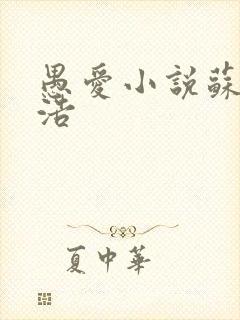 愚愛小說蘇
活
夏中華